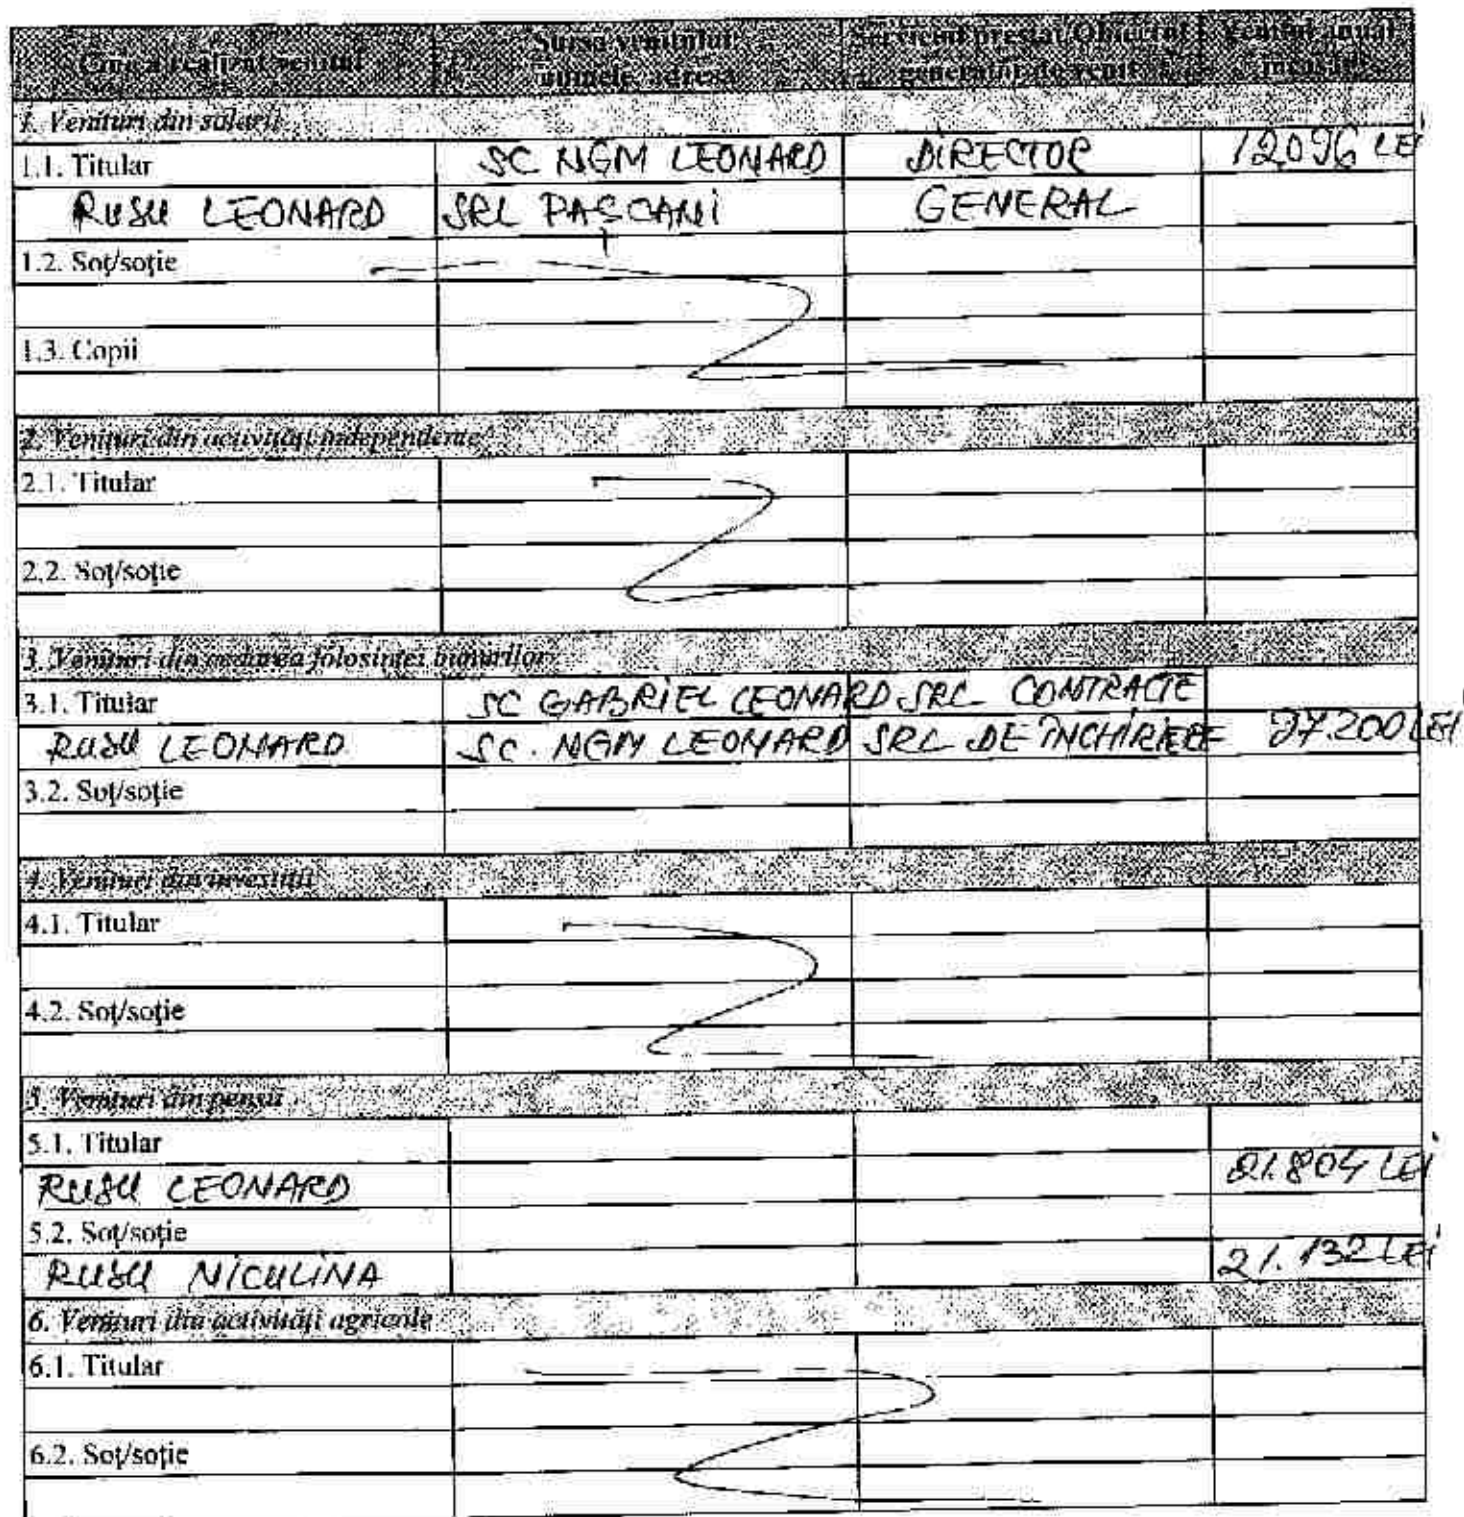 Cine a realizat venitul
Sursa venitului:
numele, adresa
Serviciul prestat/Obiectul
generator de venit
Venitul anual
încasat
1. Venituri din salarii
1.1. Titular SC NGM LEONARD DIRECTOR 12.096 LEI
RUSU LEONARD SRL PAȘCANI GENERAL
1.2. Soţ/soţie
1.3. Copii
2. Venituri din activităţi independente
2.1. Titular
2.2. Soţ/soţie
3. Venituri din cedarea folosinţei bunurilor
3.1. Titular SC GABRIEL LEONARD SRL CONTRACTE
RUSU LEONARD SC. NGM LEONARD SRL DE ÎNCHIRIERE 27.200 LEI
3.2. Soţ/soţie
4. Venituri din investiţii
4.1. Titular
4.2. Soţ/soţie
5. Venituri din pensii
5.1. Titular
RUSU LEONARD 21.804 LEI
5.2. Soţ/soţie
RUSU NICULINA 21.132 LEI
6. Venituri din activităţi agricole
6.1. Titular
6.2. Soţ/soţie